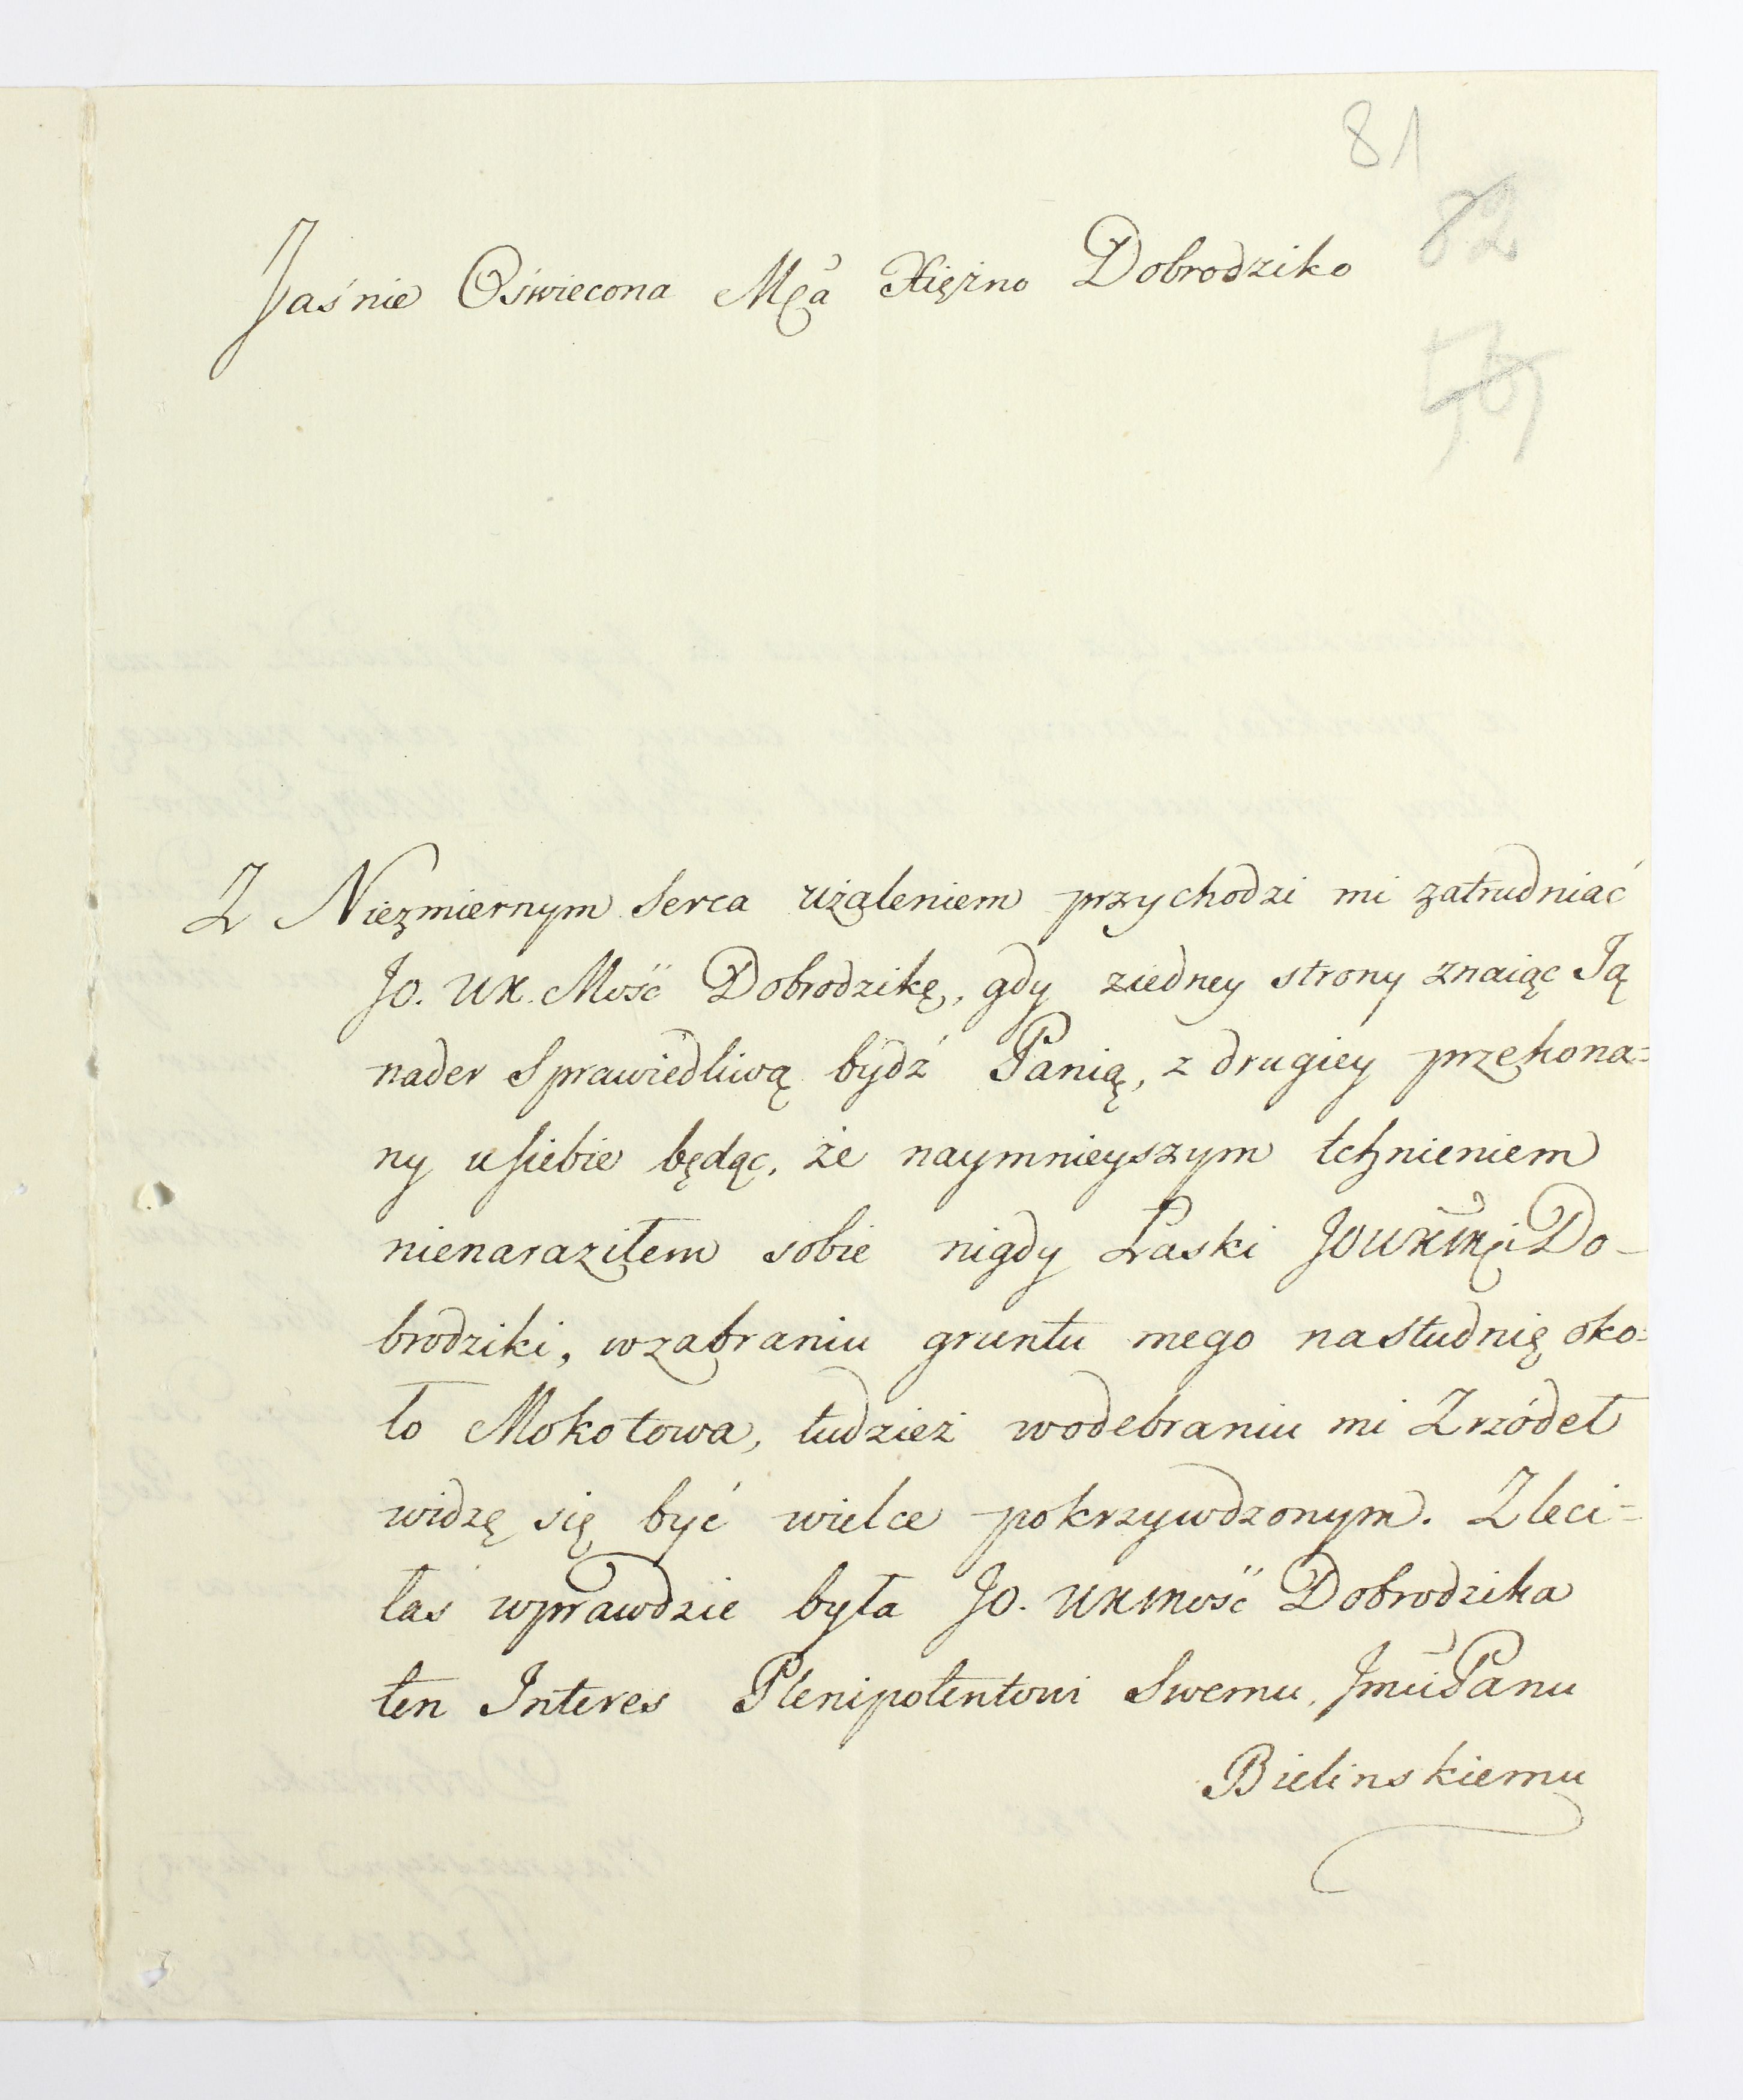 81
82
Jaśnie Oświecona Mcia Xiężno Dobrodziko
Z Niezmiernym Serca użaleniem przychodzi mi zatrudniać
Jo. WX. Mość Dobrodzikę, gdy ziedney strony znaiąc Ją
nader Sprawiedliwą bydź Panią, z drugiey przekona=
ny u siebie będąc, że naymnieyszym tchnieniem
nienaraziłem sobie nigdy Łaski JOWXMci Do-
brodziki, wzabraniu gruntu mego nastudnię oko=
ło Mokotowa, tudzież wodebraniu mi Zrzódeł
widzę się być wielce pokrzywdzonym. Zleci=
łaś wprawdzie była Jo. WXMość Dobrodzika
ten Interes Plenipotentowi Swemu, Jmći Panu
Bielinskiemu